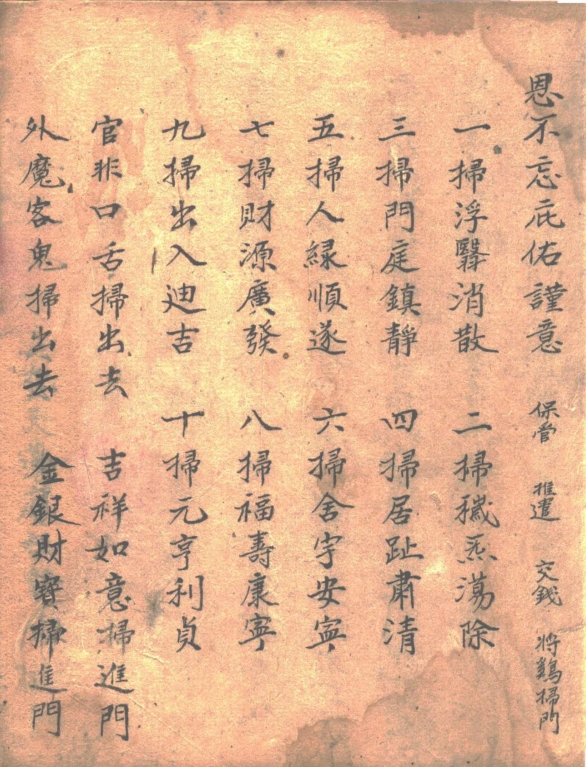 恩不忘庇佑謹意 保管 推遣 交錢 將鷄掃門
一掃浮翳消散 二掃穢炁蕩除
三掃門庭鎮靜 四掃居趾肅清
五掃人緣順遂 六掃舍宇安寧
七掃財源廣發 八掃福壽康寧
九掃出入迪吉 十掃元亨利貞
官非口舌掃出去 吉祥如意掃進門
外魔客鬼掃出去 金銀財寶掃進門